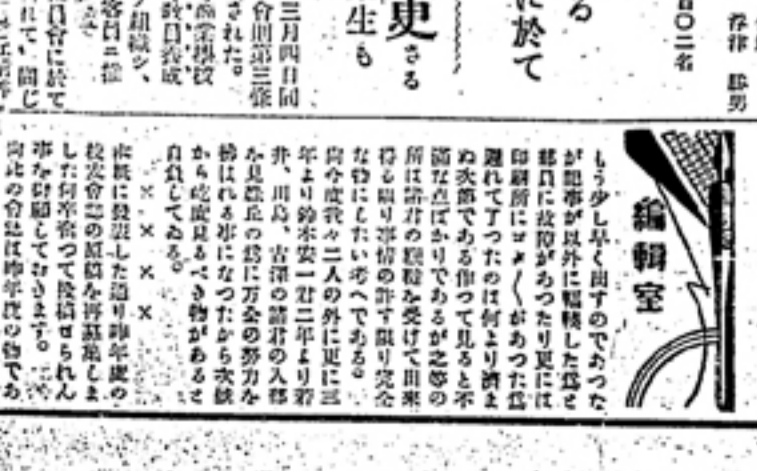 春津 勝男
省〇二名
る
に於て
更さる
生も
三月四日同
會則第三條
された。
組織シ、
員會に於て
編輯室
もう少し早く出すのであつた
が記事が以外に輻輳した爲と
部員に故障があつたり更には
印刷所にゴタ〱があつた爲
遲れて了つたのは何より濟ま
ぬ次第である作つて見ると不
滿な点ばかりであるが之等の
所は諸君の鞭韃を受けて出來
得る限り事情の許す限り完全
な物にしたい考へである。
尙今度我々二人の外に更に三
年より鈴木安一君二年より若
井、川島、吉澤の諸君の入部
を見農丘の爲に万全の努力を
拂はれる事になつたから次號
から吃度見るべき物があると
自負してゐる。
× × × ×
本紙に發表した通り昨年度の
校友會誌の原稿を再募集しま
した何卒奮つて投稿せられん
事を御願しておきます。
尙此の會誌は昨年度の物であ